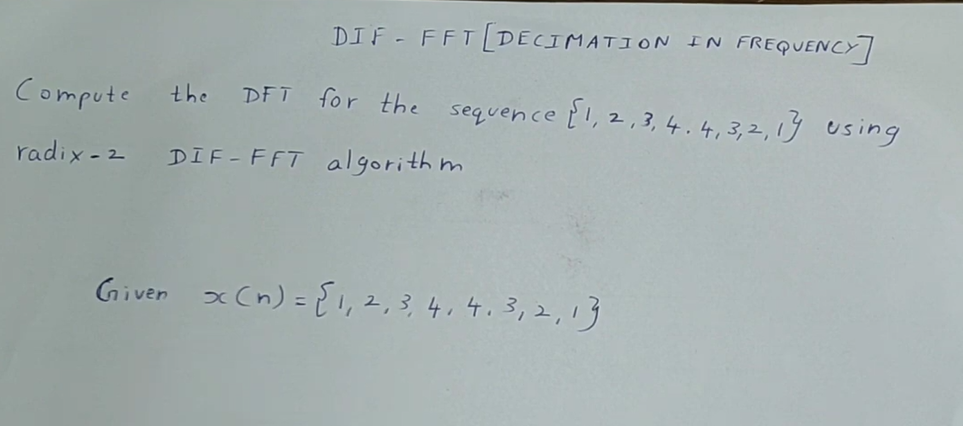 DIF - FFT [DECIMATION IN FREQUENCY]
Compute the DFT for the sequence {1, 2, 3, 4. 4, 3, 2, 1} using
radix-2 DIF-FFT algorithm
Given x(n) = {1, 2, 3, 4, 4. 3, 2, 1}